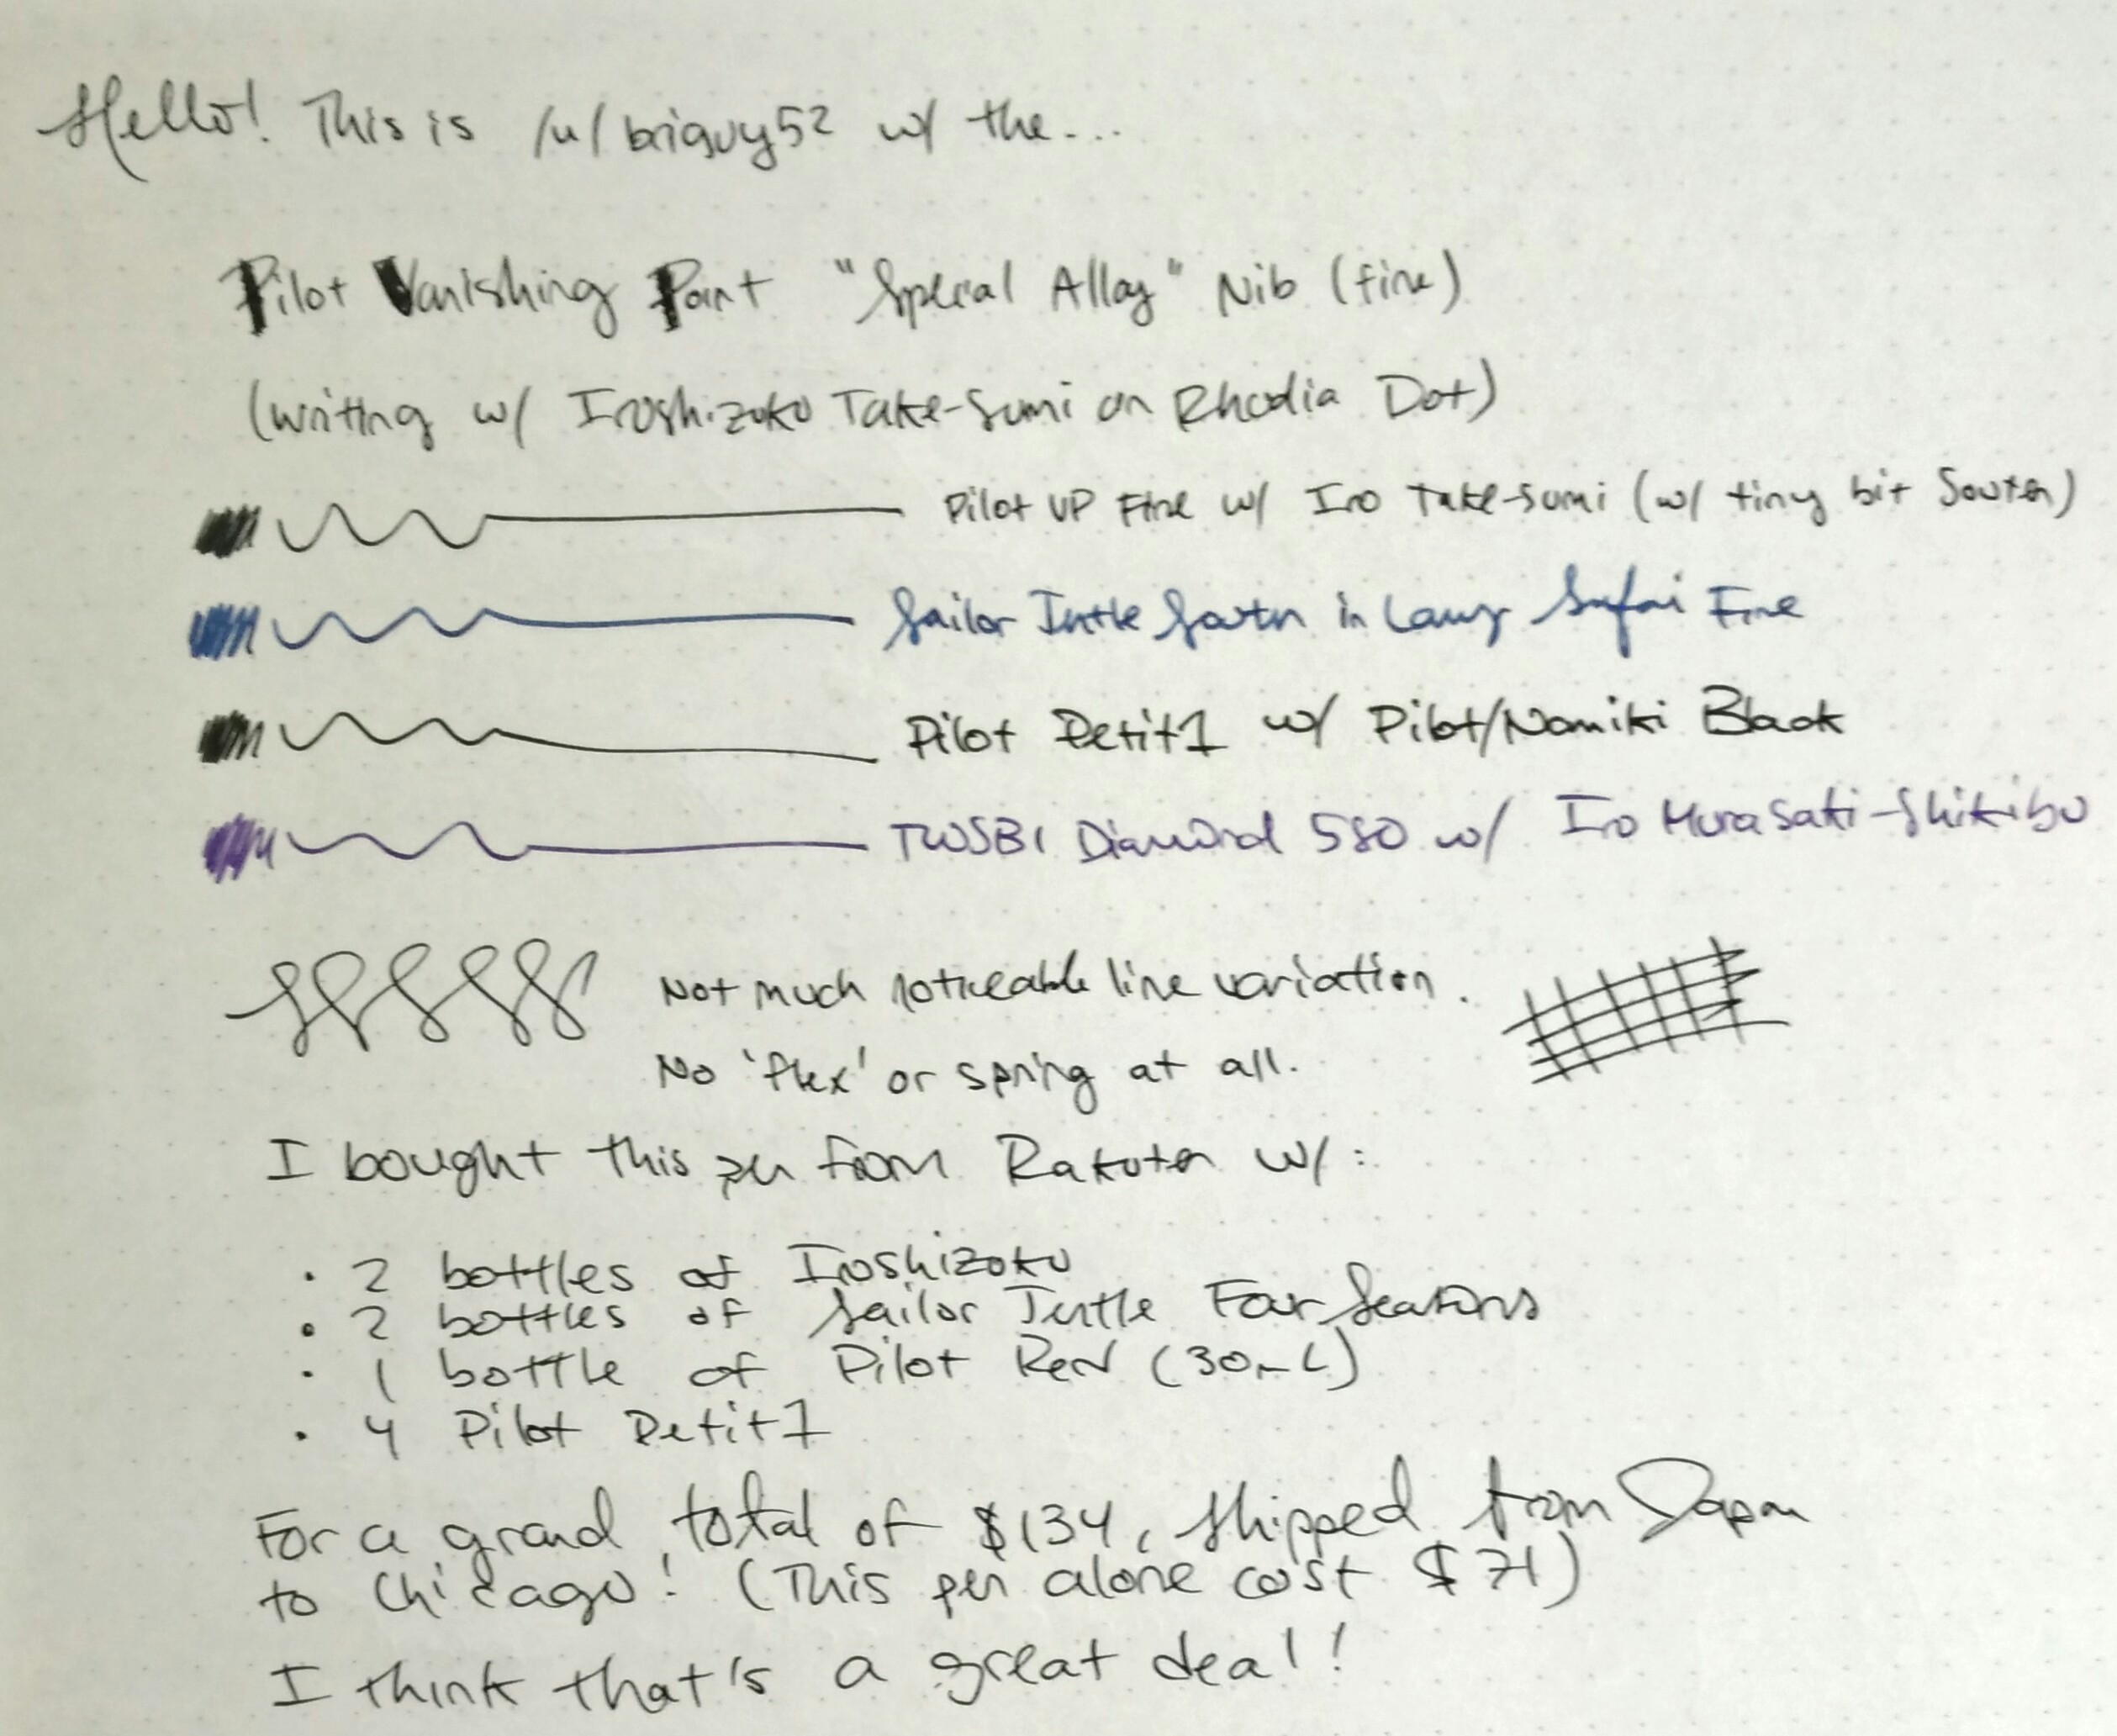 Hello! This is /u/briguy52 w/ the...
Pilot Vanishing Point "Special Alloy" Nib (fine)
(writing w/ Iroshizoku Take-Sumi on Rhodia Dot)
Pilot VP Fine w/ Iro Take-sumi (w/ tiny bit Souten)
Sailor Jentle Souten in Lamy Safari Fine
Pilot Petit1 w/ Pilot/Namiki Black
TWSBI Diamond 580 w/ Iro Murasaki-Shikibu
Not much noticeable line variation.
No 'flex' or spring at all.
I bought this pen from Rakuten w/:
· 2 bottles of Iroshizoku
· 2 bottles of Sailor Jentle Four Seasons
· 1 bottle of Pilot Red (30mL)
· 4 Pilot Petit1
For a grand total of $134, shipped from Japan
to Chicago! (This pen alone cost $71)
I think that's a great deal!